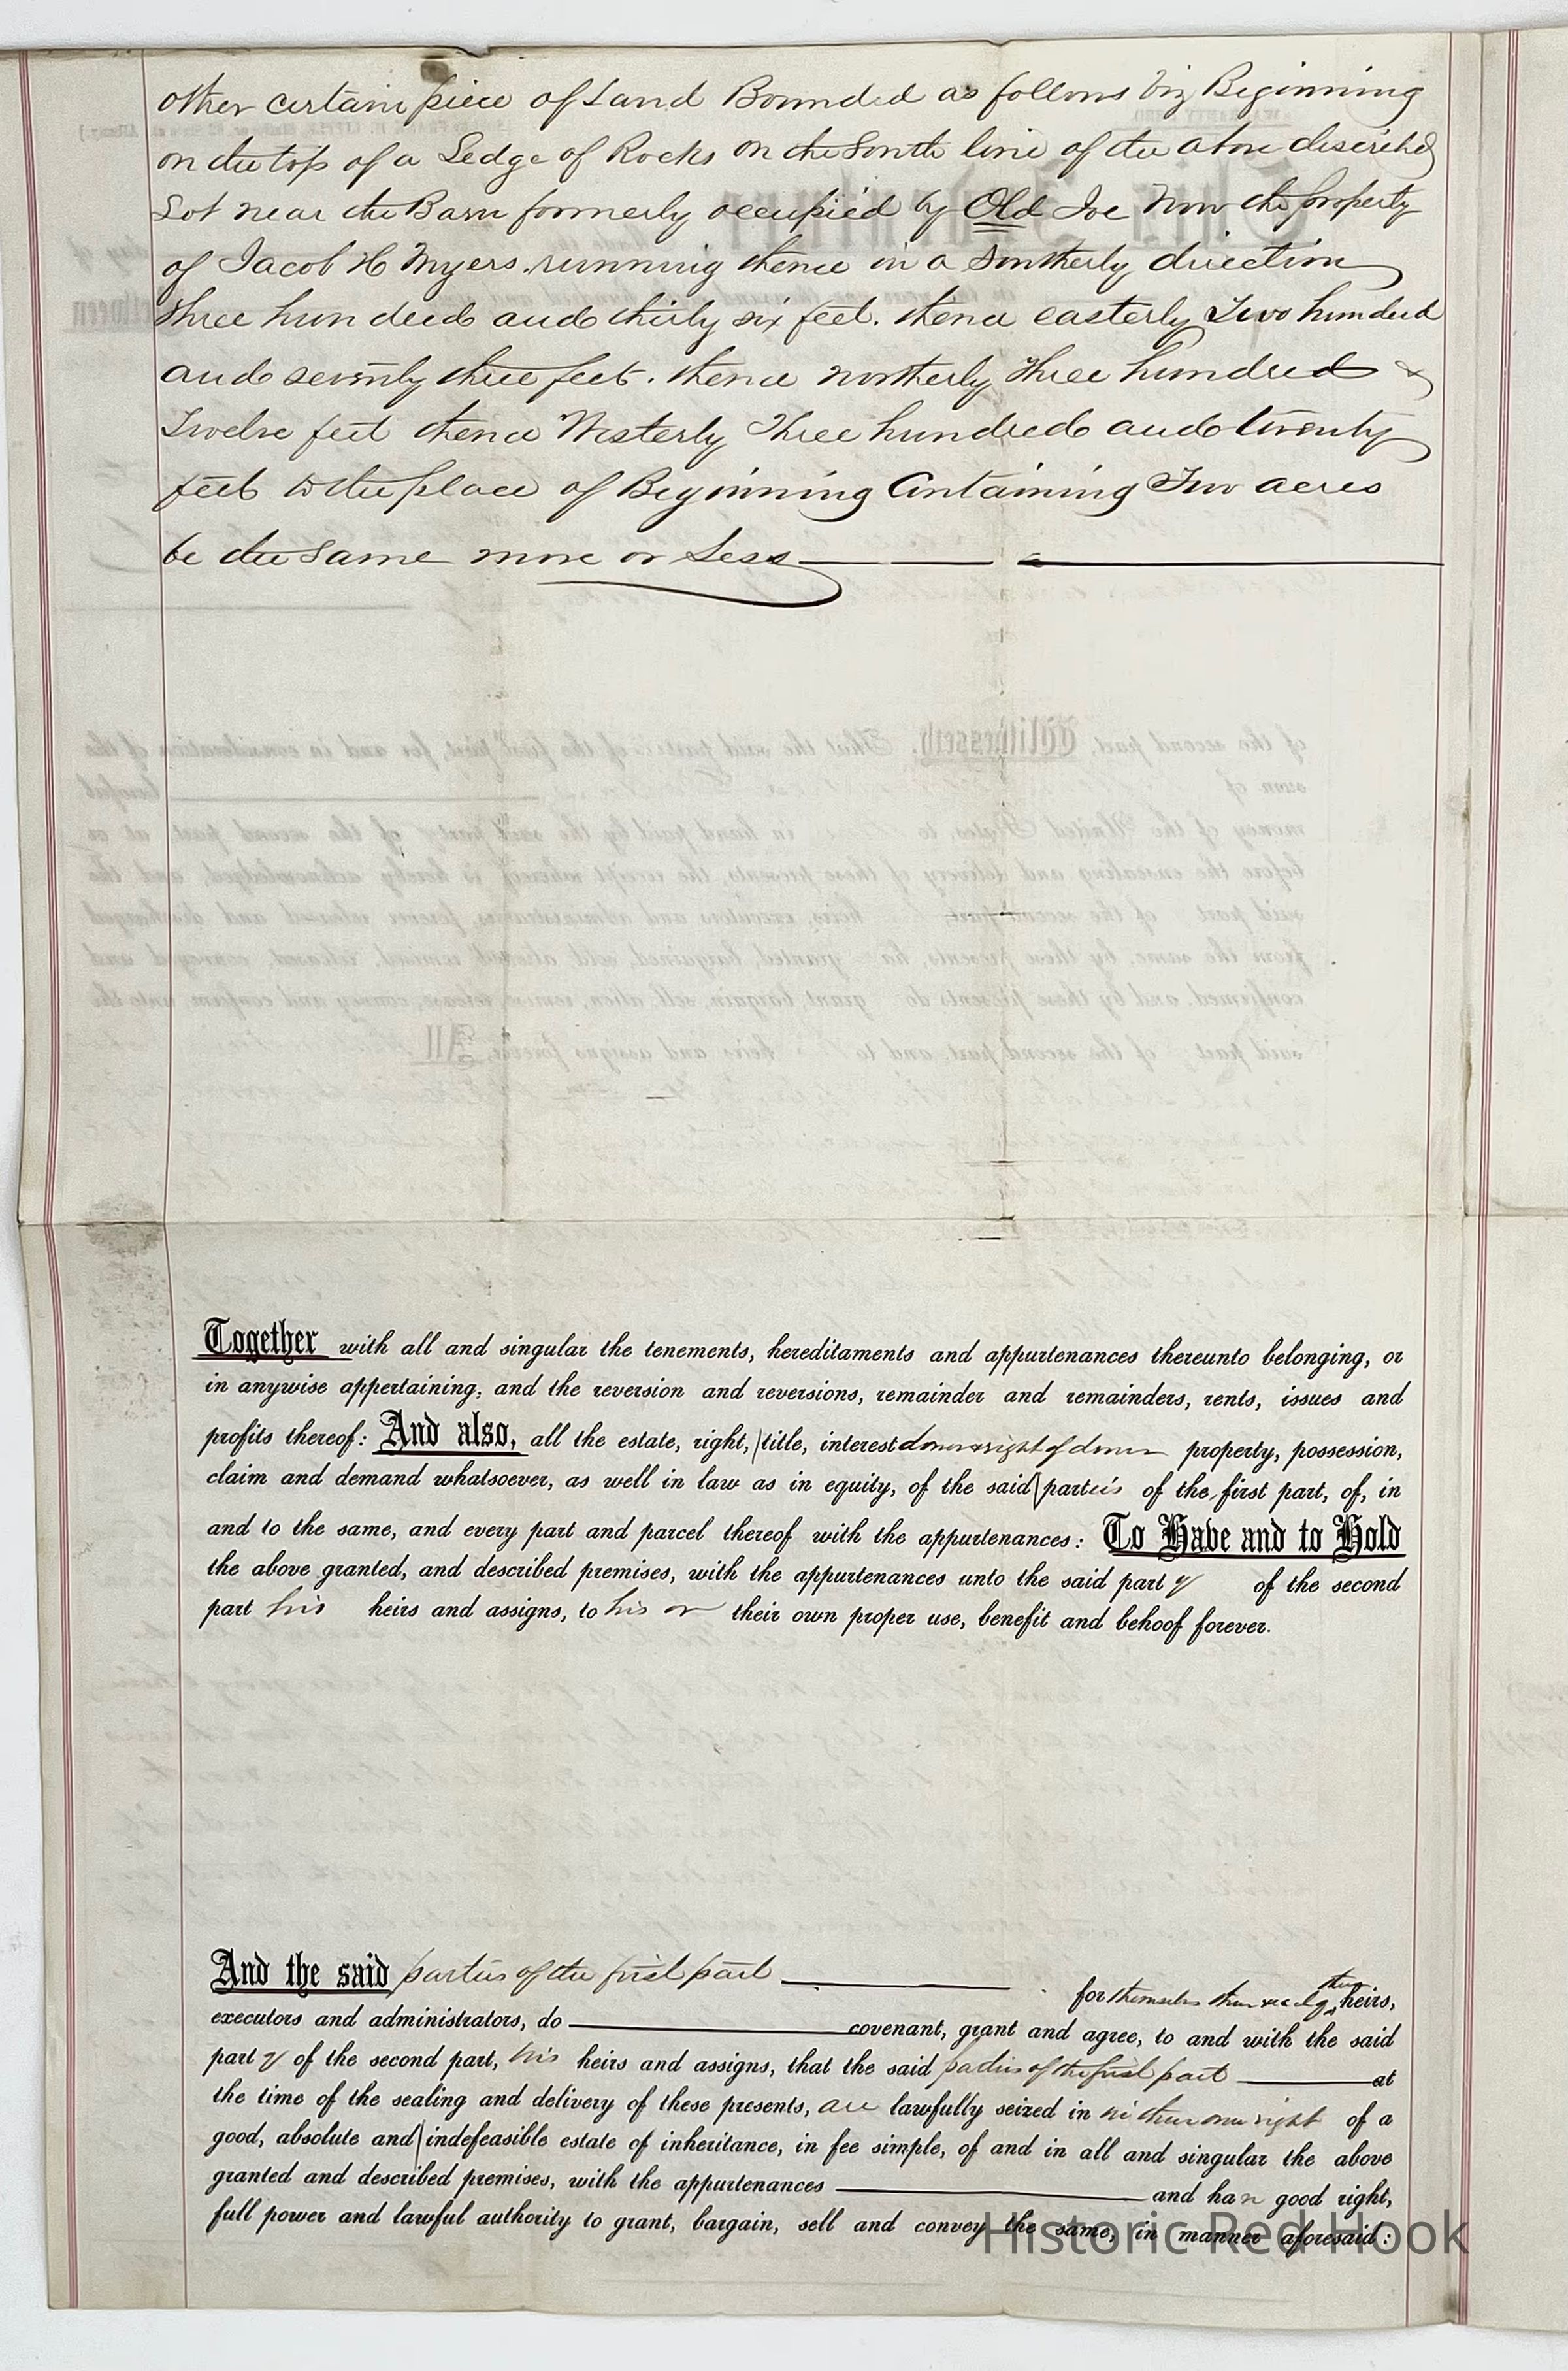 other certain piece of Land Bounded as follows viz Beginning
on the top of a Ledge of Rocks on the South line of the above described
Lot near the Barn formerly occupied by Old Joe Now the property
of Jacob H Myers. running thence in a Southerly direction
Three hundred and thirty six feet. thence easterly Two hundred
and seventy three feet. thence northerly Three hundred &
Twelve feet thence Westerly Three hundred and twenty
feet to the place of Beginning Containing Two acres
be the same more or Less
Together with all and singular the tenements, hereditaments and appurtenances thereunto belonging, or
in anywise appertaining, and the reversion and reversions, remainder and remainders, rents, issues and
profits thereof: And also, all the estate, right, title, interest dower & right of dower property, possession,
claim and demand whatsoever, as well in law as in equity, of the said parties of the first part, of, in
and to the same, and every part and parcel thereof with the appurtenances: To Have and to Hold
the above granted, and described premises, with the appurtenances unto the said part y of the second
part his heirs and assigns, to his or their own proper use, benefit and behoof forever.
And the said parties of the first part for themselves their heirs,
executors and administrators, do covenant, grant and agree, to and with the said
part y of the second part, his heirs and assigns, that the said parties of the first part at
the time of the sealing and delivery of these presents, are lawfully seized in their own right of a
good, absolute and indefeasible estate of inheritance, in fee simple, of and in all and singular the above
granted and described premises, with the appurtenances and have good right,
full power and lawful authority to grant, bargain, sell and convey the same, in manner aforesaid:
Historic Red Hook